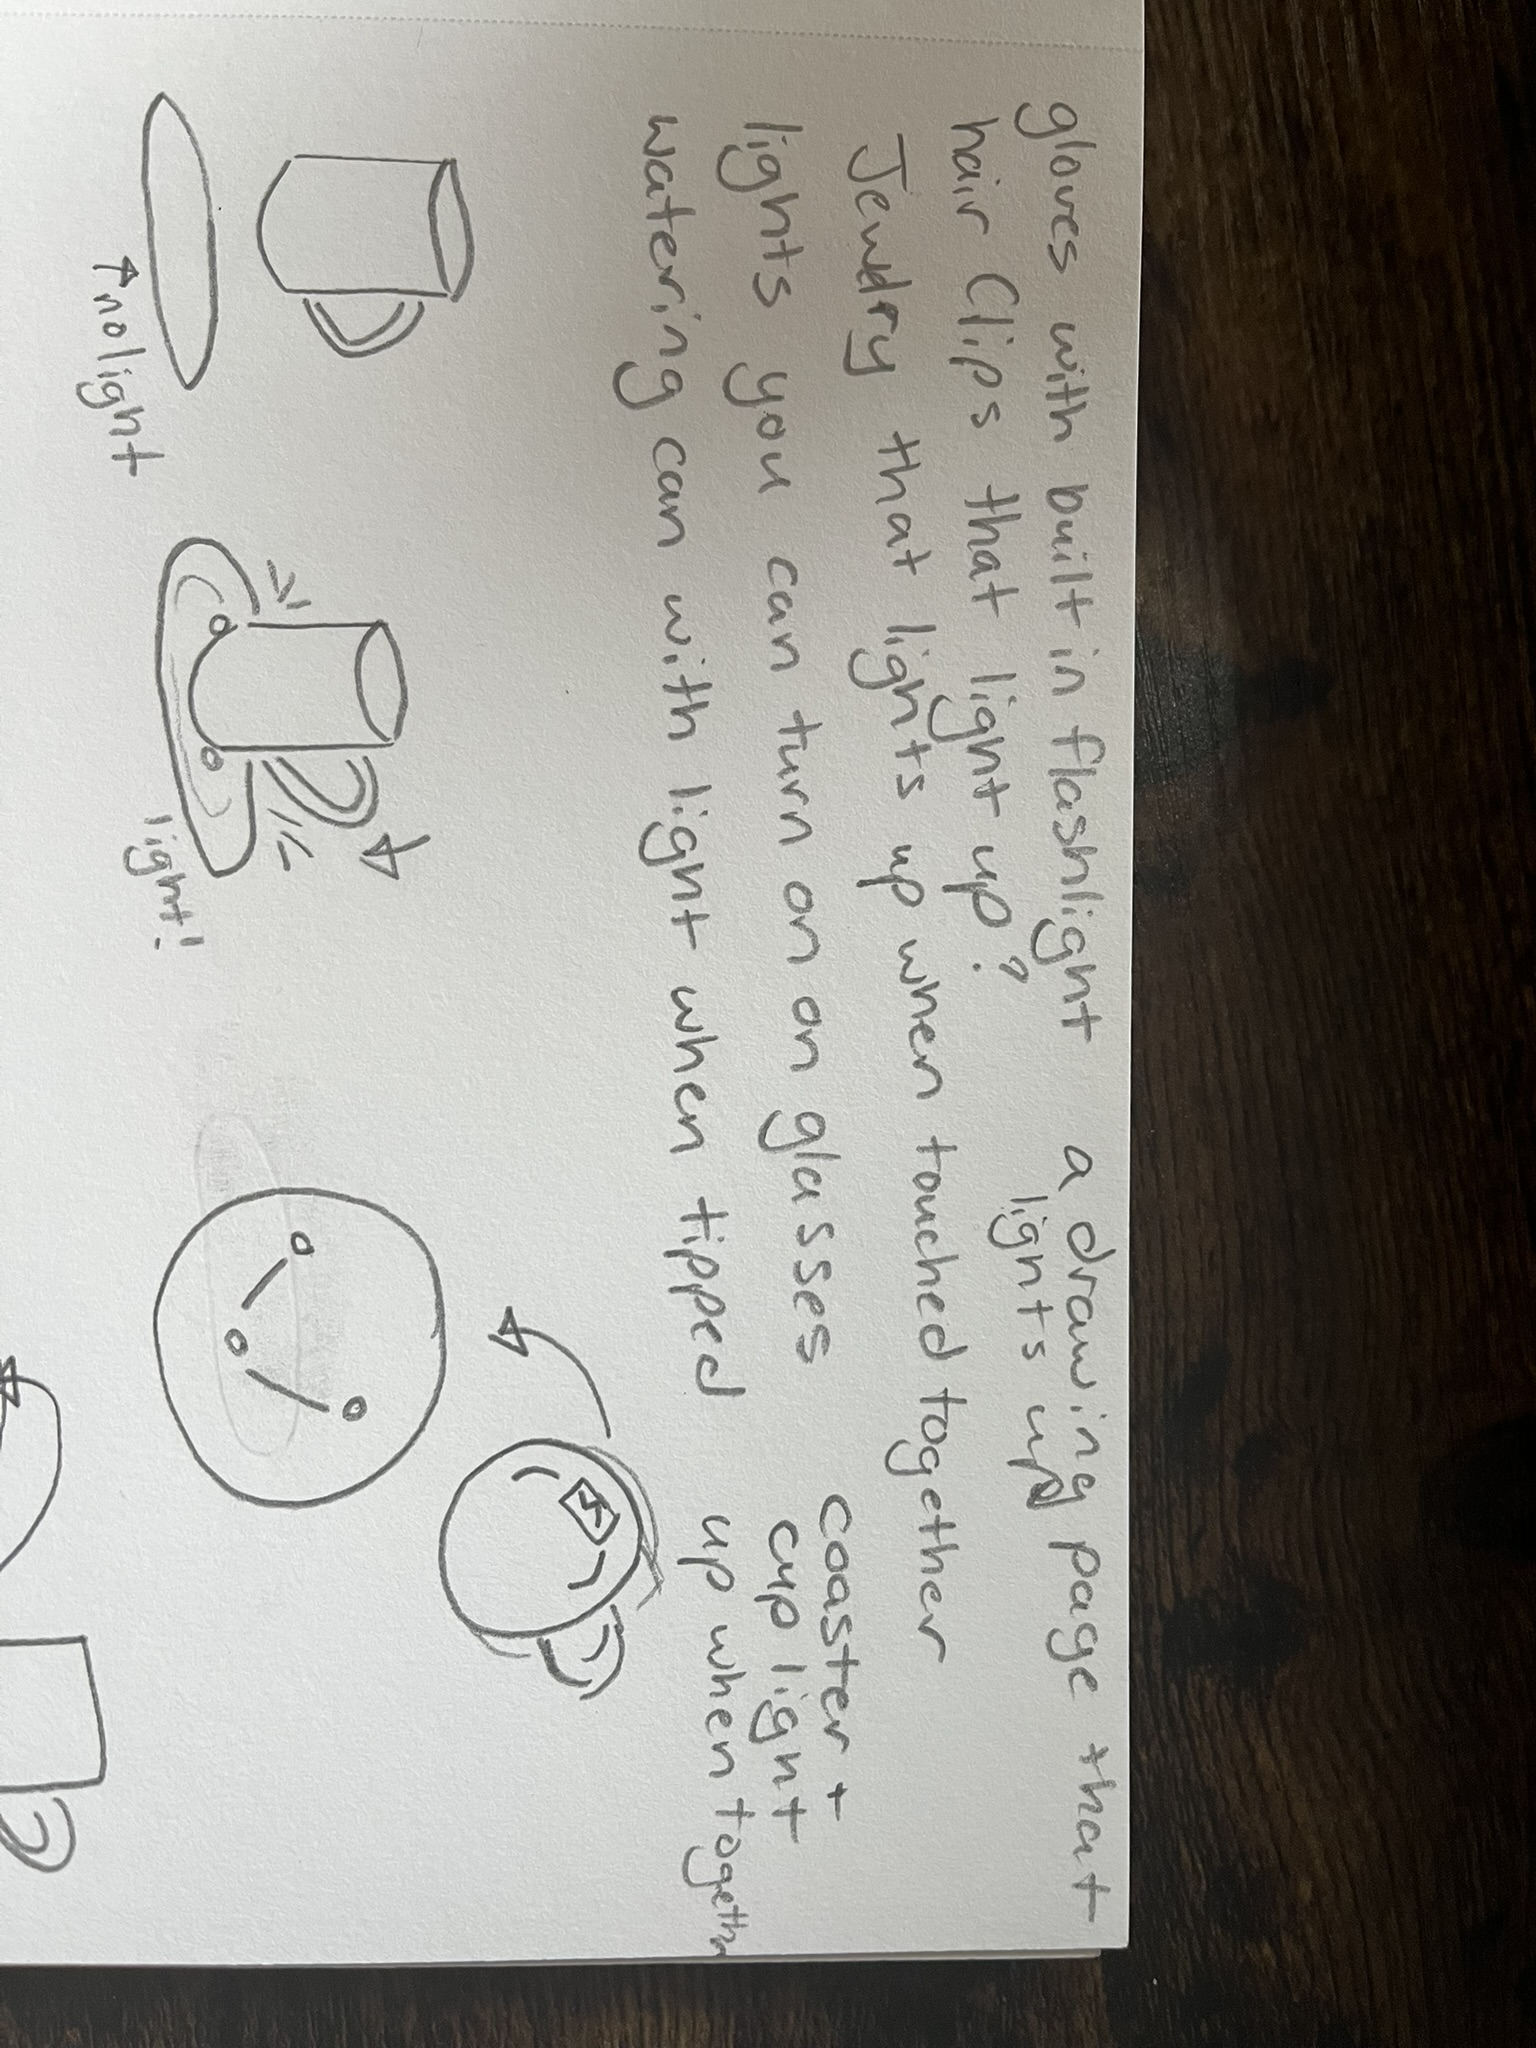 gloves with built in flashlight
a drawing page that
lights up
hair Clips that light up?
Jewelry that lights up when touched together
lights you can turn on on glasses
watering can with light when tipped
coaster +
cup light
up when together
↑ no light
light!